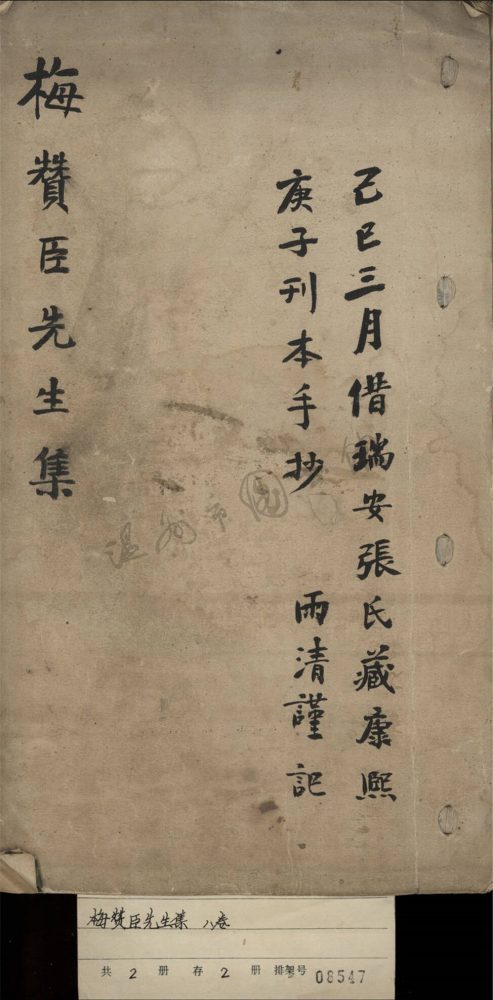 己巳三月借瑞安張氏藏康熙
庚子刊本手抄
雨清謹記
梅贊臣先生集
温州市圖
梅贊臣先生集 八卷
共 2 册 存 2 册 排架号 08547